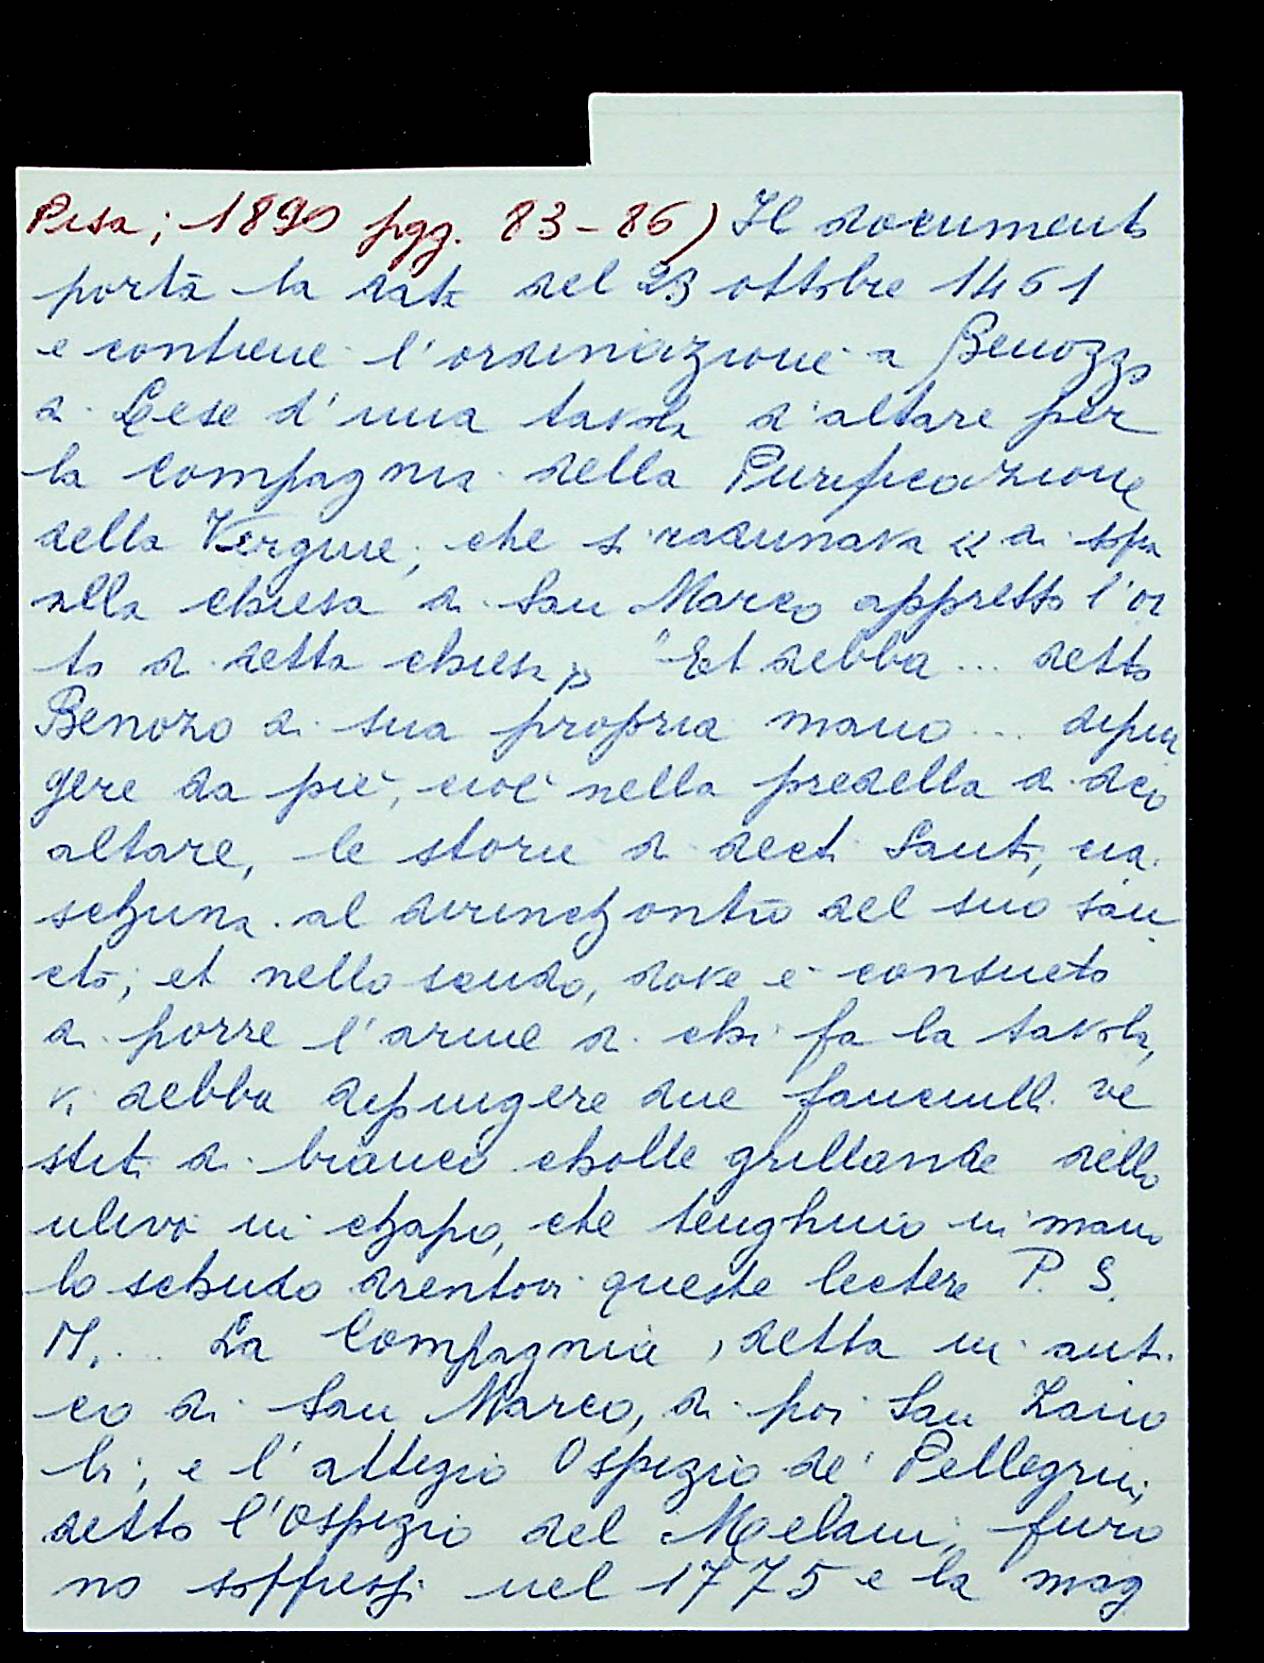 Pisa; 1890 pgg. 83-86) Il documento
porta la data del 23 ottobre 1461
e contiene l'ordinazione a Benozzo
di Lese d'una tavola d'altare per
la Compagnia della Purificazione
della Vergine, che si radunava « di spa
alla chiesa di San Marco appresso l'or
to di detta chiesa » "Et debba ... detto
Benozo di sua propria mano ... dipin
gere da piè, cioè nella predella di dco
altare, le storie di decti Santi, cia
schuna al dirinchontro del suo san
cto; et nello scudo, dove è consueto
di porre l'arme di chi fa la tavola,
vi debba dipingere due fanciulli ve
stiti di bianco cholle grillande dello
ulivo in chapo, che tenghino in mano
lo schudo drentovi queste lectere P. S.
M. ... La Compagnia, detta in anti
co di San Marco, di poi San Zano
bi, e l'attiguo Ospizio de' Pellegrini,
detto l'Ospizio del Melani, furo
no soppressi nel 1775 e la mag